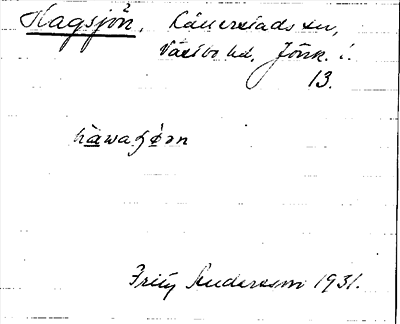 Hagsjön, Kållerstads sn,
Västbo hd, Jönk. l.
13.
Fritz Andersson 1931.